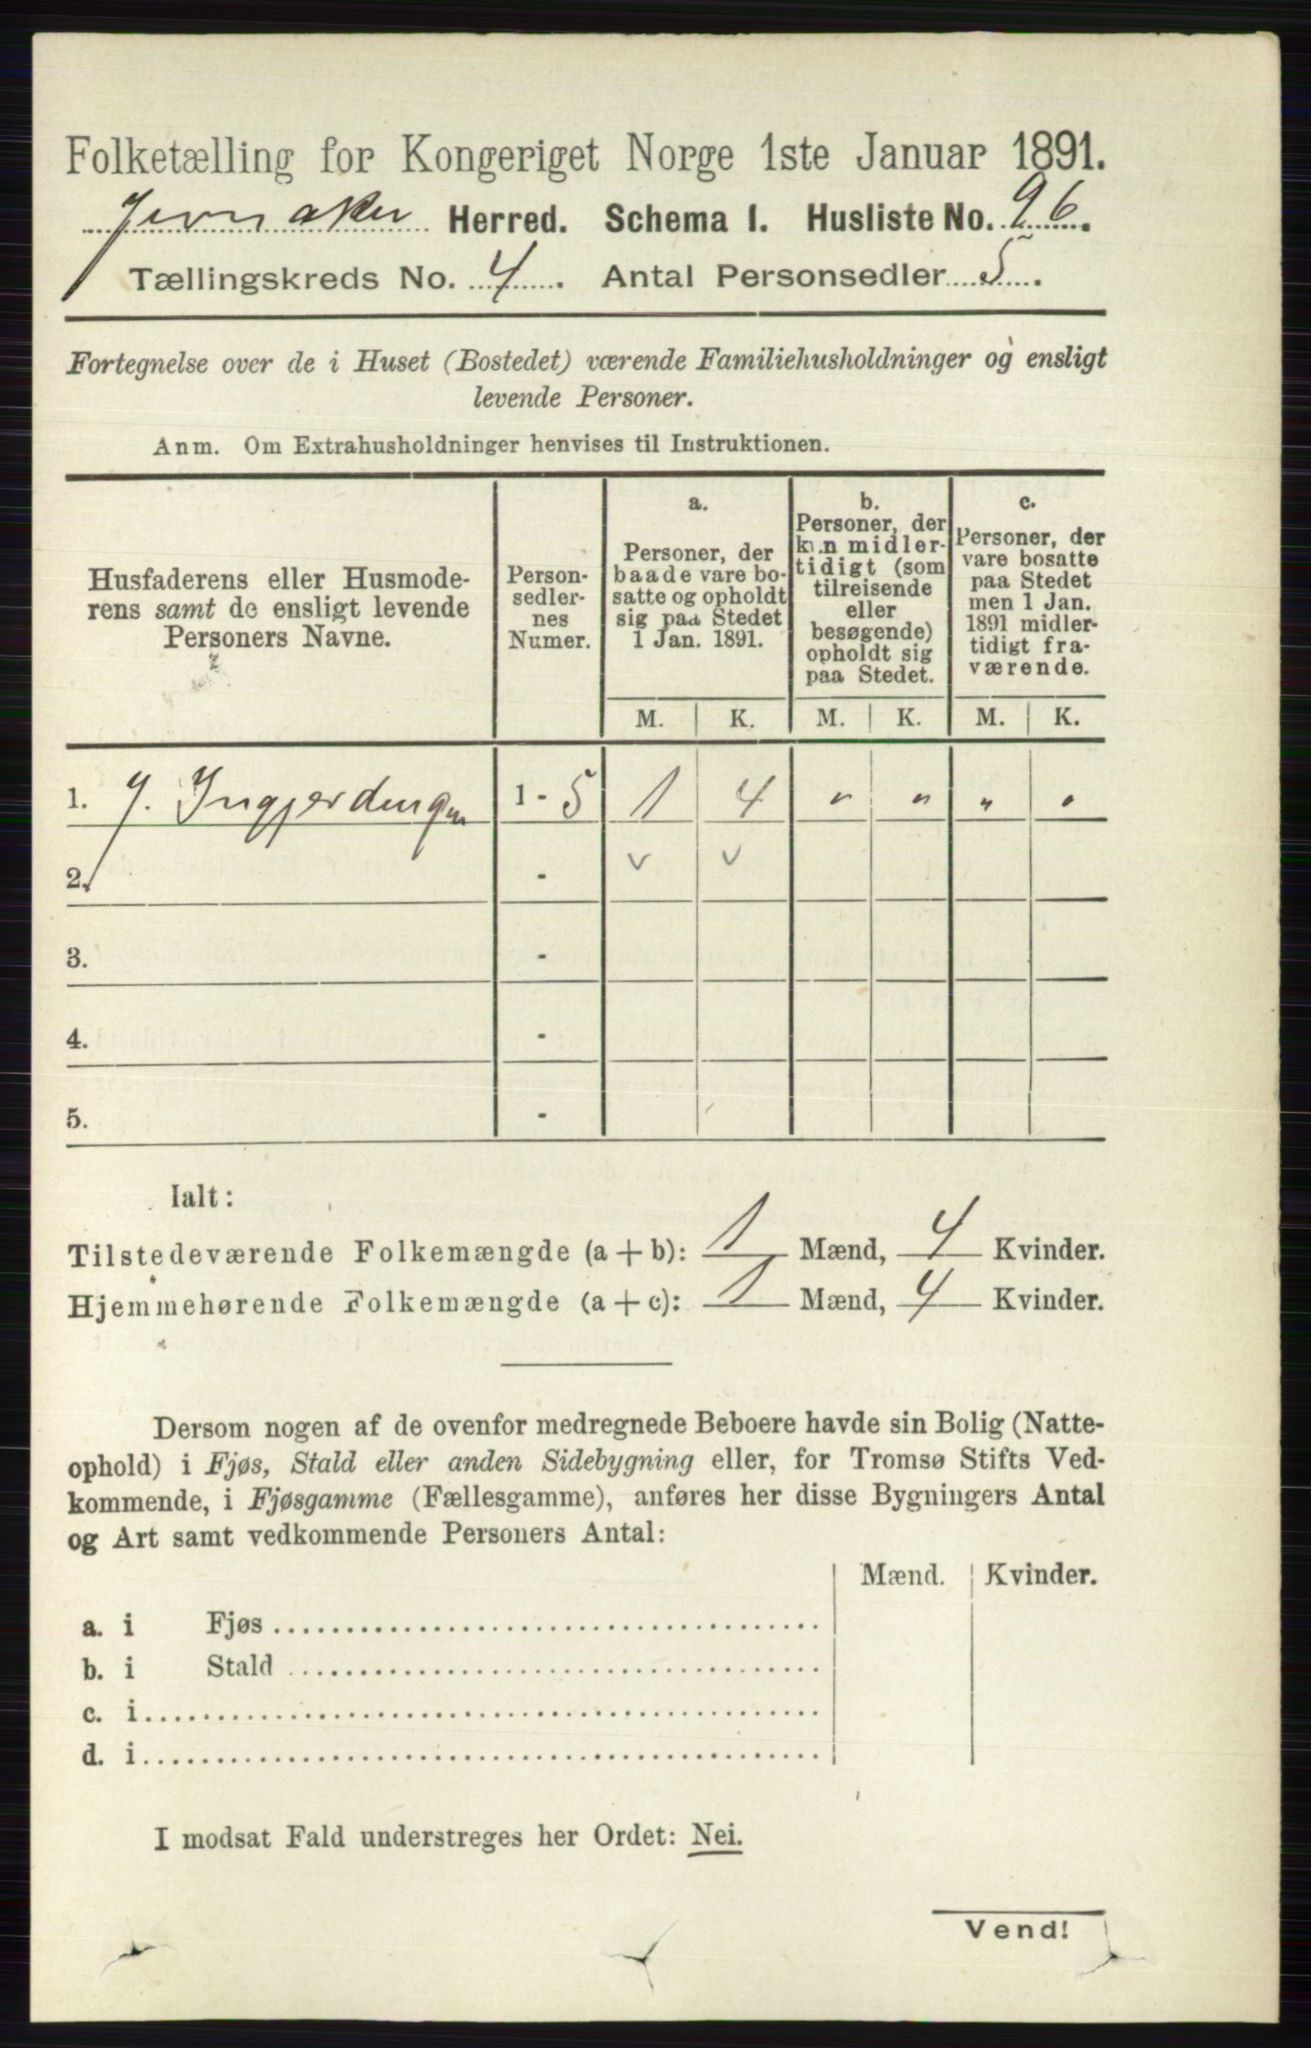 Folketælling for Kongeriget Norge 1ste Januar 1891.
Jevnaker Herred. Schema 1. Husliste No. 96.
Tællingskreds No. 4. Antal Personsedler 5.
Fortegnelse over de i Huset (Bostedet) værende Familiehusholdninger og ensligt
levende Personer.
Anm. Om Extrahusholdninger henvises til Instruktionen.
Husfaderens eller Husmode-
rens samt de ensligt levende
Personers Navne.
Person-
sedler-
nes
Numer.
a.
Personer, der
baade vare bo-
satte og opholdt
sig paa Stedet
1 Jan. 1891.
b.
Personer, der
kun midler-
tidigt (som
tilreisende
eller
besøgende)
opholdt sig
paa Stedet.
c.
Personer, der
vare bosatte
paa Stedet
men 1 Jan.
1891 midler-
tidigt fra-
værende.
M. K. M. K. M. K.
1. J. Ingjerdingen 1 - 5 1 4 " " " "
2. - v v
3. -
4. -
5. -
Ialt:
Tilstedeværende Folkemængde (a + b): 1 Mænd, 4 Kvinder.
Hjemmehørende Folkemængde (a + c): 1 Mænd, 4 Kvinder.
Dersom nogen af de ovenfor medregnede Beboere havde sin Bolig (Natte-
ophold) i Fjøs, Stald eller anden Sidebygning eller, for Tromsø Stifts Ved-
kommende, i Fjøsgamme (Fællesgamme), anføres her disse Bygningers Antal
og Art samt vedkommende Personers Antal:
Mænd. Kvinder.
a. i Fjøs
b. i Stald
c. i
d. i
I modsat Fald understreges her Ordet: Nei.
Vend!